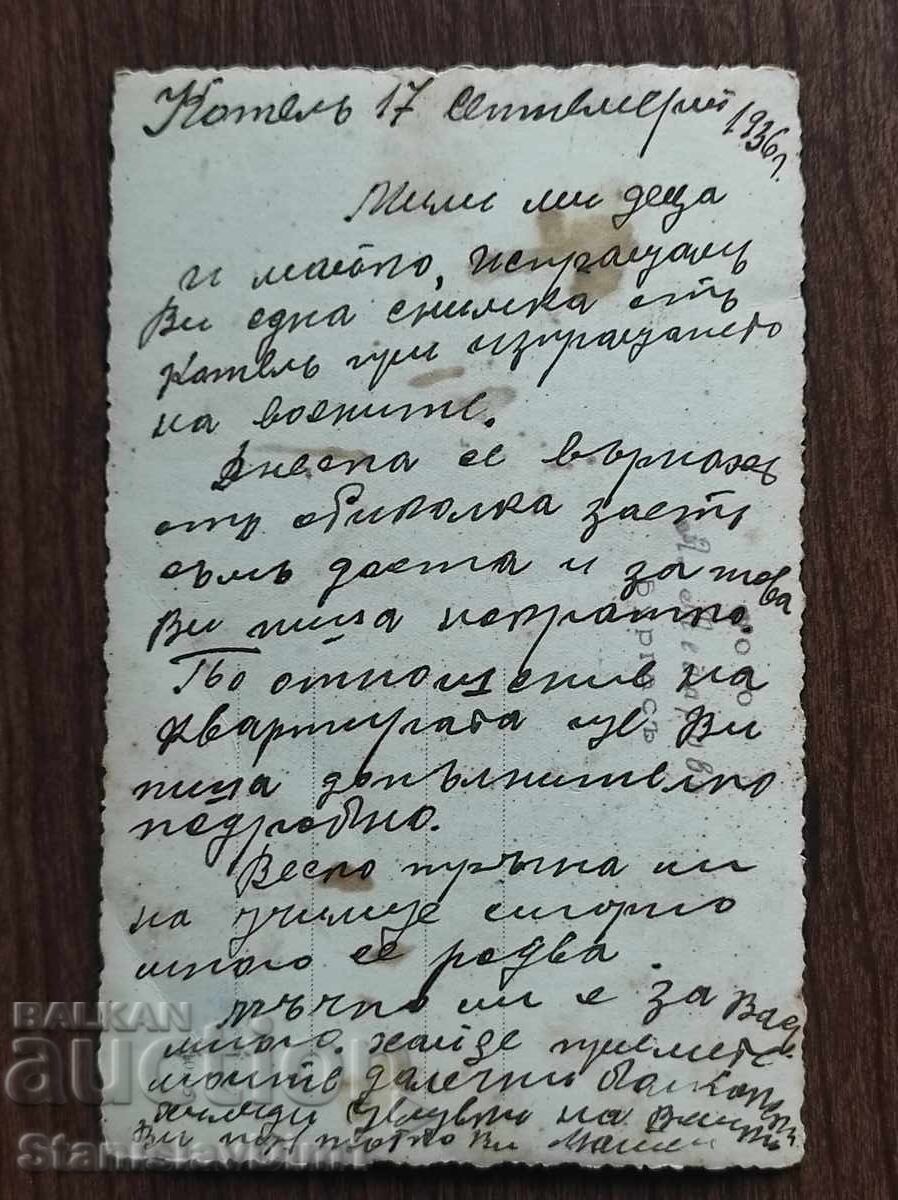 Котелъ 17 Септемврий 1936 г.
Мили ми деца
и майко, испращамъ
Ви една снимка отъ
Котелъ при изпращането
на военните.
Днеска се върнахъ
отъ обиколка заетъ
съмъ доста и за това
Ви пиша накратко.
По отношение на
квартирата ще Ви
пиша допълнително
подробно.
Веско тръгна ли
на училище сигорно
много се родва.
мъчно ми е за Вас
много. хайде приемете
моите далечни балкански
целувки на
Ви
фото
Бургасъ
BALKAN
auction
Stanislavbuni